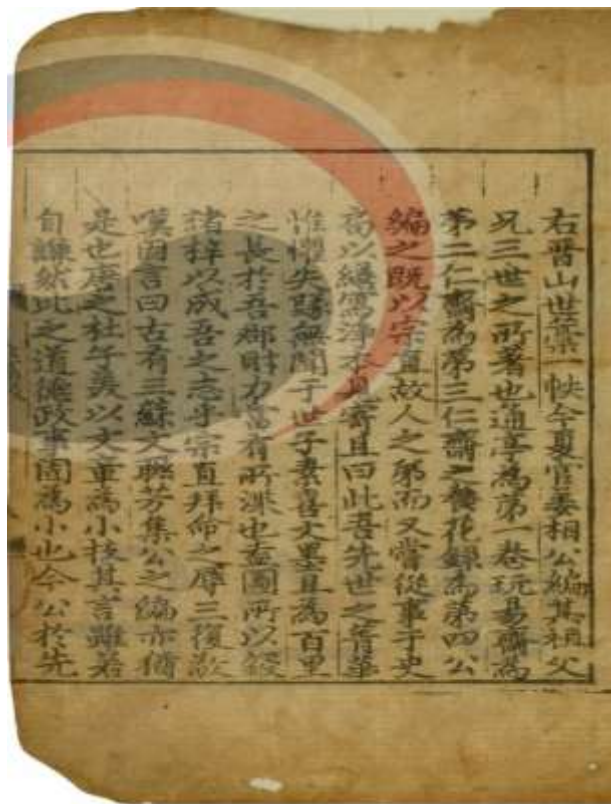 右晋山世藁一帙今夏官姜相公編其祖父
兄三世之所著也通亭為第一巻玩易齋為
第二仁齋為第三仁齋之養花録為第四公
編之既以宗直故人之弟而又嘗從事于史
局以繕寫淨本見寄且曰此吾先世之菁華
惟懼失墜無聞于世子素喜文墨且為百里
之長於吾鄉財力當有所深也盍圖所以鋟
諸梓以成吾之志乎宗直拜命之辱三復歎
嘆因言曰古有三蘇文聯芳集公之編亦猶
是也唐之杜子美以文章為小技其言雖若
自謙然比之道德政事固為小也今公於先